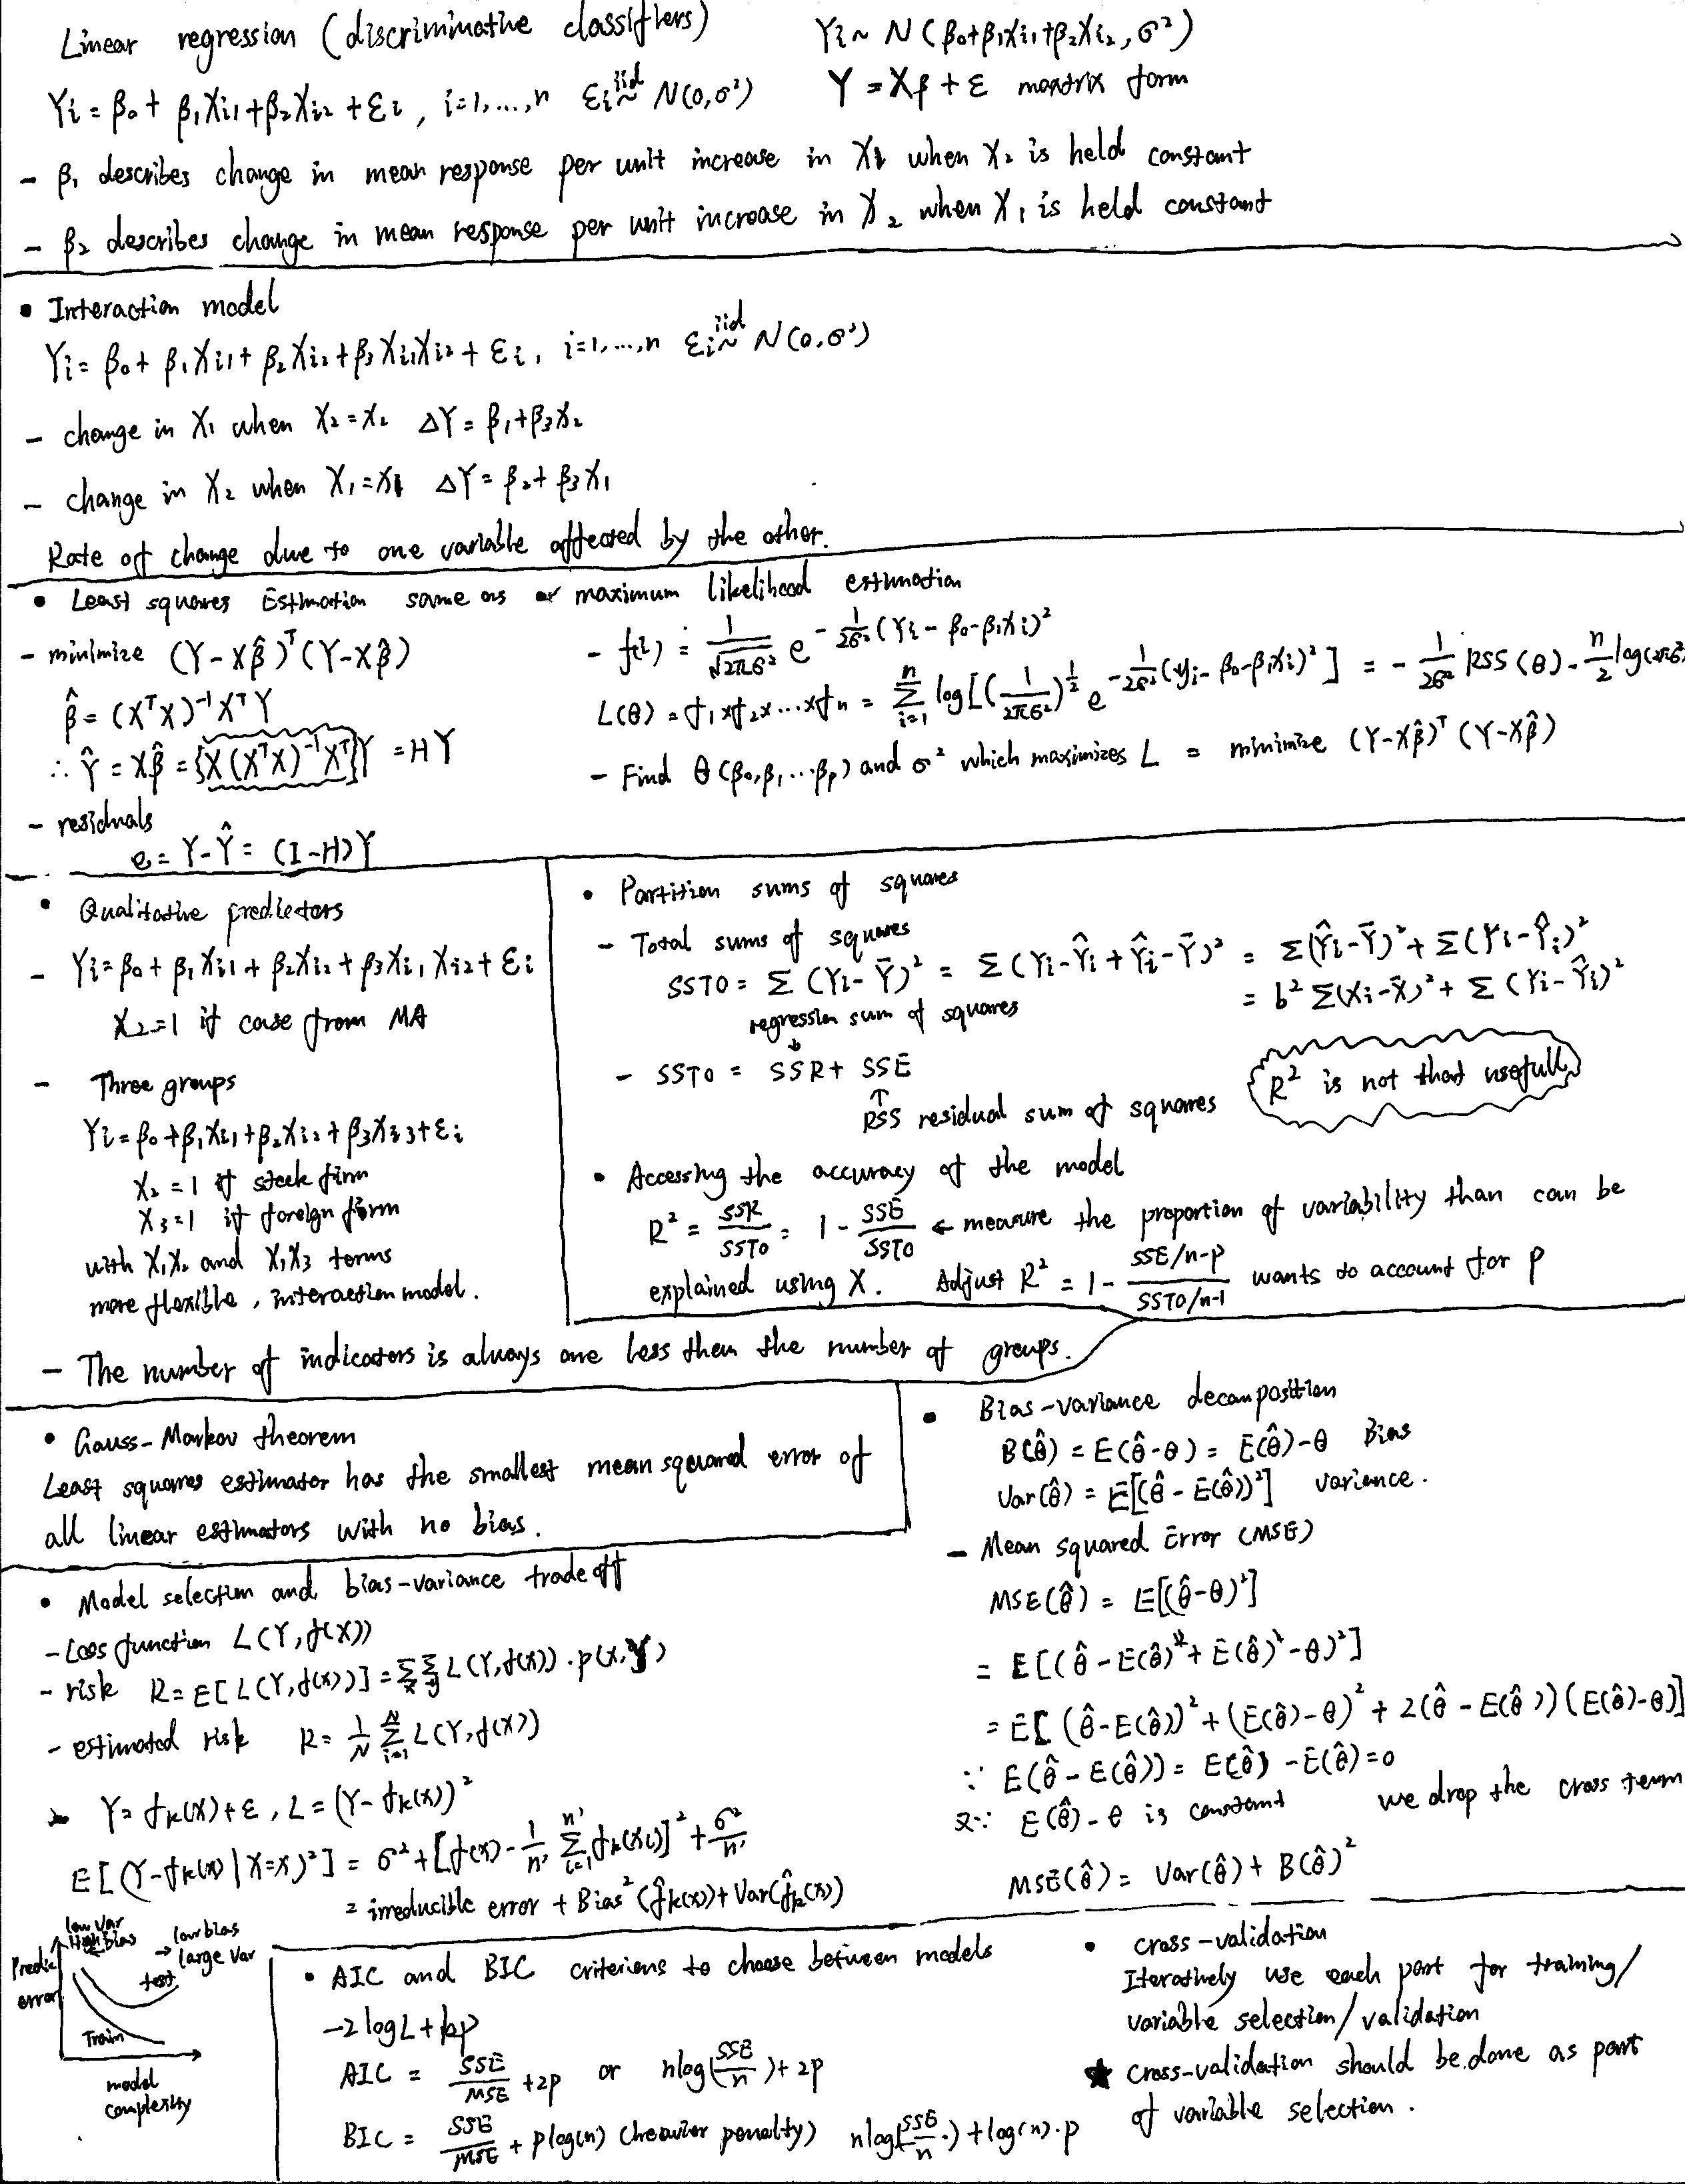 Linear regression (discriminative classifiers)
Yi ~ N(β0+β1Xi1+β2Xi2, σ²)
Yi = β0 + β1Xi1+β2Xi2 + εi, i=1,...,n εi iid~ N(0,σ²)
Y = Xβ + ε matrix form
- β1 describes change in mean response per unit increase in X1 when X2 is held constant
- β2 describes change in mean response per unit increase in X2 when X1 is held constant
• Interaction model
Yi = β0 + β1Xi1 + β2Xi2 + β3Xi1Xi2 + εi, i=1,...,n εi iid~ N(0,σ²)
- change in X1 when X2=x2 ΔY = β1+β3X2
- change in X2 when X1=x1 ΔY = β2+β3X1
Rate of change due to one variable affected by the other.
• Least squares Estimation same as maximum likelihood estimation
- minimize (Y-Xβ̂)ᵀ(Y-Xβ̂)
β̂ = (XᵀX)⁻¹XᵀY
∴ Ŷ = Xβ̂ = {X(XᵀX)⁻¹Xᵀ}Y = HY
- residuals
e = Y-Ŷ = (I-H)Y
- f(i) = 1/√(2πσ²) e^(-1/(2σ²) (Yi - β0-β1Xi)²)
L(θ) = f1×f2×...×fn = Σ(i=1 to n) log[(1/(2πσ²))^(1/2) e^(-1/(2σ²)(yi - β0-β1xi)²)] = -1/(2σ²) RSS(θ) - n/2 log(2πσ²
- Find θ(β0,β1,...βp) and σ² which maximizes L = minimize (Y-Xβ̂)ᵀ(Y-Xβ̂)
• Qualitative predictors
- Yi = β0 + β1Xi1 + β2Xi2 + β3Xi1Xi2 + εi
X2=1 if case from MA
- Three groups
Yi = β0+β1Xi1+β2Xi2+β3Xi3+εi
X2=1 if stock firm
X3=1 if foreign firm
with X1X2 and X1X3 terms
more flexible, interaction model.
- The number of indicators is always one less then the number of groups.
• Partition sums of squares
- Total sums of squares
SSTO = Σ(Yi-Ȳ)² = Σ(Yi-Ŷi+Ŷi-Ȳ)² = Σ(Ŷi-Ȳ)² + Σ(Yi-Ŷi)²
= b²Σ(Xi-X̄)² + Σ(Yi-Ŷi)²
regression sum of squares
↓
- SSTO = SSR + SSE
↑
RSS residual sum of squares
R² is not that usefull
• Accessing the accuracy of the model
R² = SSR/SSTO = 1 - SSE/SSTO ← measure the proportion of variability than can be
explained using X. Adjust R² = 1 - (SSE/n-p)/(SSTO/n-1) wants to account for p
• Gauss-Markov theorem
Least squares estimator has the smallest mean squared error of
all linear estimators with no bias.
• Bias-variance decomposition
B(θ̂) = E(θ̂-θ) = E(θ̂)-θ Bias
Var(θ̂) = E[(θ̂-E(θ̂))²] variance.
- Mean squared Error (MSE)
MSE(θ̂) = E[(θ̂-θ)²]
= E[(θ̂-E(θ̂)+E(θ̂)-θ)²]
= E[(θ̂-E(θ̂))²+(E(θ̂)-θ)²+2(θ̂-E(θ̂))(E(θ̂)-θ)]
∵ E(θ̂-E(θ̂)) = E(θ̂)-E(θ̂)=0
&∵ E(θ̂)-θ is constant we drop the cross term
MSE(θ̂) = Var(θ̂) + B(θ̂)²
• Model selection and bias-variance tradeoff
- Loss function L(Y,f(X))
- risk R = E[L(Y,f(x))] = Σx Σy L(Y,f(x))·p(x,y)
- estimated risk R = 1/N Σ(i=1 to N) L(Y,f(X))
- Y = fk(X)+ε, L = (Y-fk(x))²
E[(Y-fk(x)|X=x)²] = σ²+[f(x)-1/n' Σ(i=1 to n') fk(xi)]²+σ²/n'
= irreducible error + Bias²(f̂k(x)) + Var(f̂k(x))
low var
High bias
low bias
→ large var
Predic
error
test
Train
model
complexity
• AIC and BIC criterions to choose between models
-2logL+kp
AIC = SSE/MSE + 2p or nlog(SSE/n)+2p
BIC = SSE/MSE + plog(n) (heavier penalty) nlog(SSE/n)+log(n)·p
• cross-validation
Iteratively use each part for training/
variable selection/validation
★ cross-validation should be done as part
of variable selection.